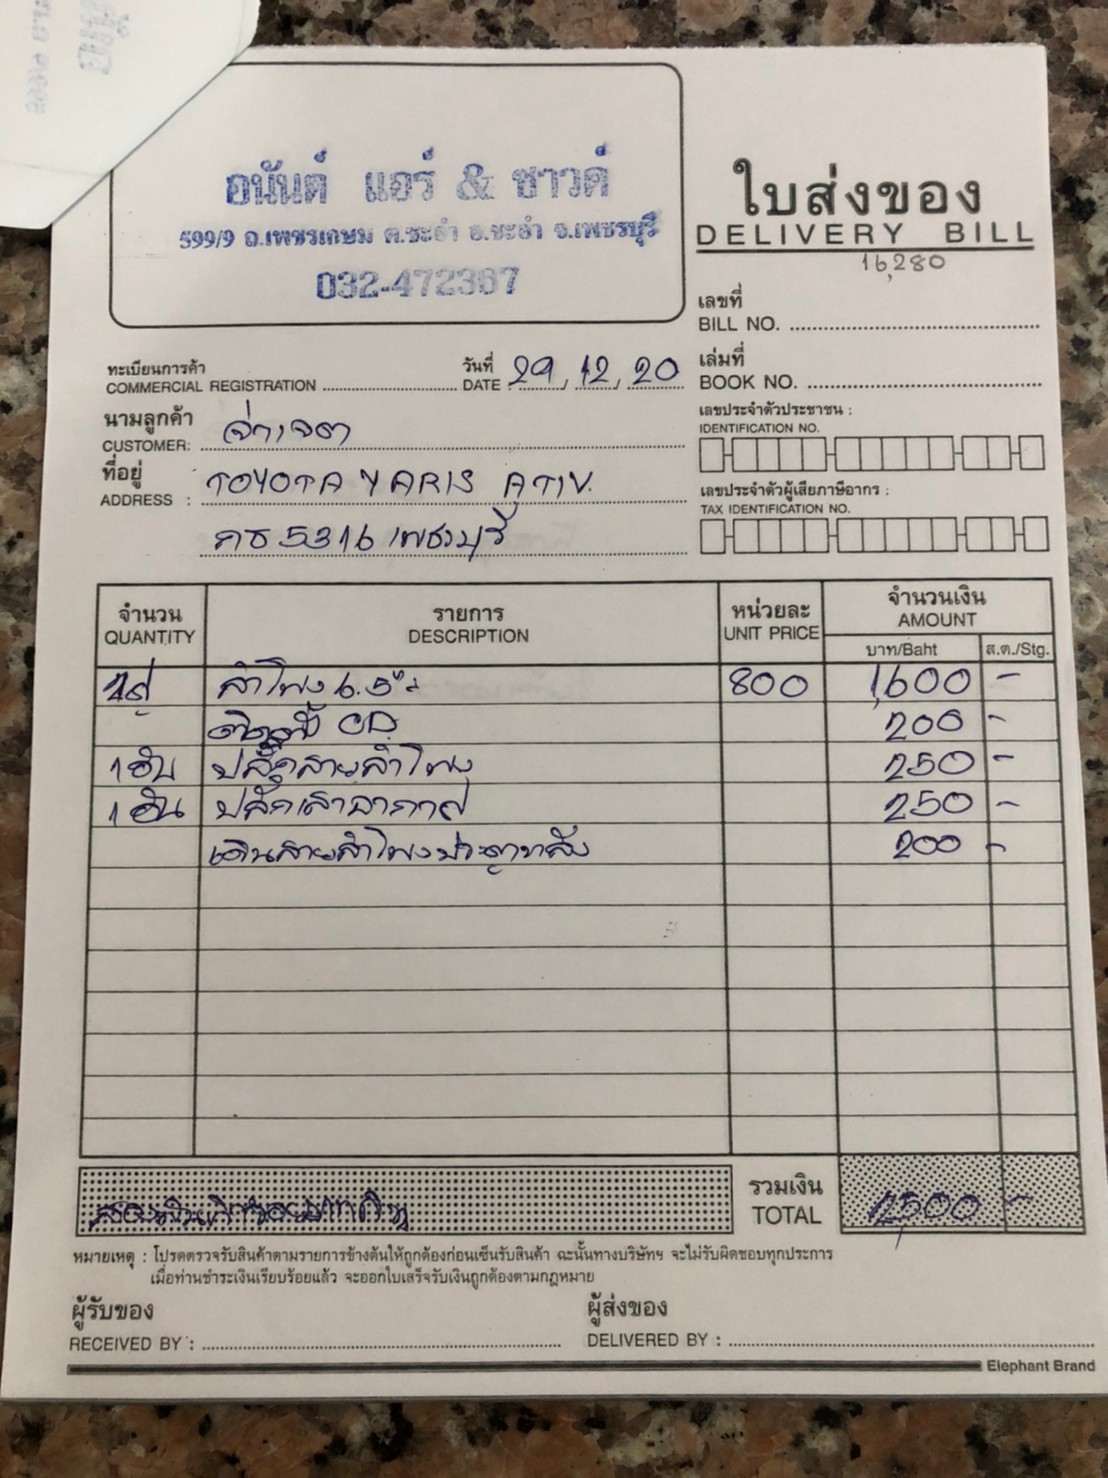 อนันต์ แอร์ & ซาวด์
599/9 ถ.เพชรเกษม ต.ชะอำ อ.ชะอำ จ.เพชรบุรี
032-472367
ใบส่งของ
DELIVERY BILL
16,280
เลขที่
BILL NO.
ทะเบียนการค้า
COMMERCIAL REGISTRATION
วันที่
DATE 29, 12, 20
เล่มที่
BOOK NO.
นามลูกค้า
CUSTOMER:
เลขประจำตัวประชาชน :
IDENTIFICATION NO.
ที่อยู่
ADDRESS : TOYOTA YARIS ATIV.
เลขประจำตัวผู้เสียภาษีอากร :
TAX IDENTIFICATION NO.
5316 เพชรบุรี
จำนวน
QUANTITY
รายการ
DESCRIPTION
หน่วยละ
UNIT PRICE
จำนวนเงิน
AMOUNT
บาท/Baht
ส.ต./Stg.
2คู่ ลำโพง 6.5" 800 1,600 -
200 -
1 อัน ปลั๊กสายลำโพง 250 -
1 อัน ปลั๊กเสาอากาศ 250 -
เดินสายลำโพงประตูหลัง 200 -
สองพันห้าร้อยบาทถ้วน
รวมเงิน
TOTAL
2,500 -
หมายเหตุ : โปรดตรวจรับสินค้าตามรายการข้างต้นให้ถูกต้องก่อนเซ็นรับสินค้า ฉะนั้นทางบริษัทฯ จะไม่รับผิดชอบทุกประการ
เมื่อท่านชำระเงินเรียบร้อยแล้ว จะออกใบเสร็จรับเงินถูกต้องตามกฎหมาย
ผู้รับของ
RECEIVED BY :
ผู้ส่งของ
DELIVERED BY :
Elephant Brand